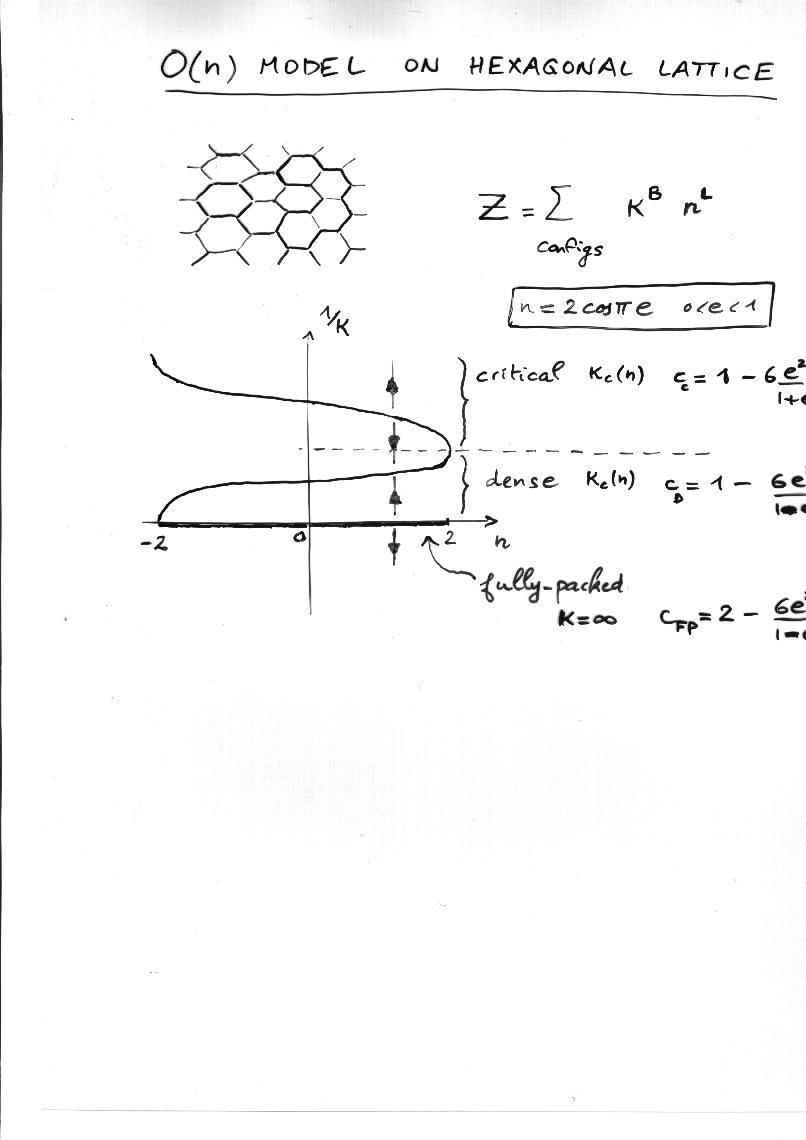 O(n) MODEL ON HEXAGONAL LATTICE
Z = Σ K^B n^L
configs
n = 2 cos π e 0<e<1
1/K
critical Kc(n) c_c = 1 - 6e²/1+e
dense Kc(n) c_D = 1 - 6e/1-
-2 0 2 n
fully-packed
K=∞ c_FP = 2 - 6e²/1-